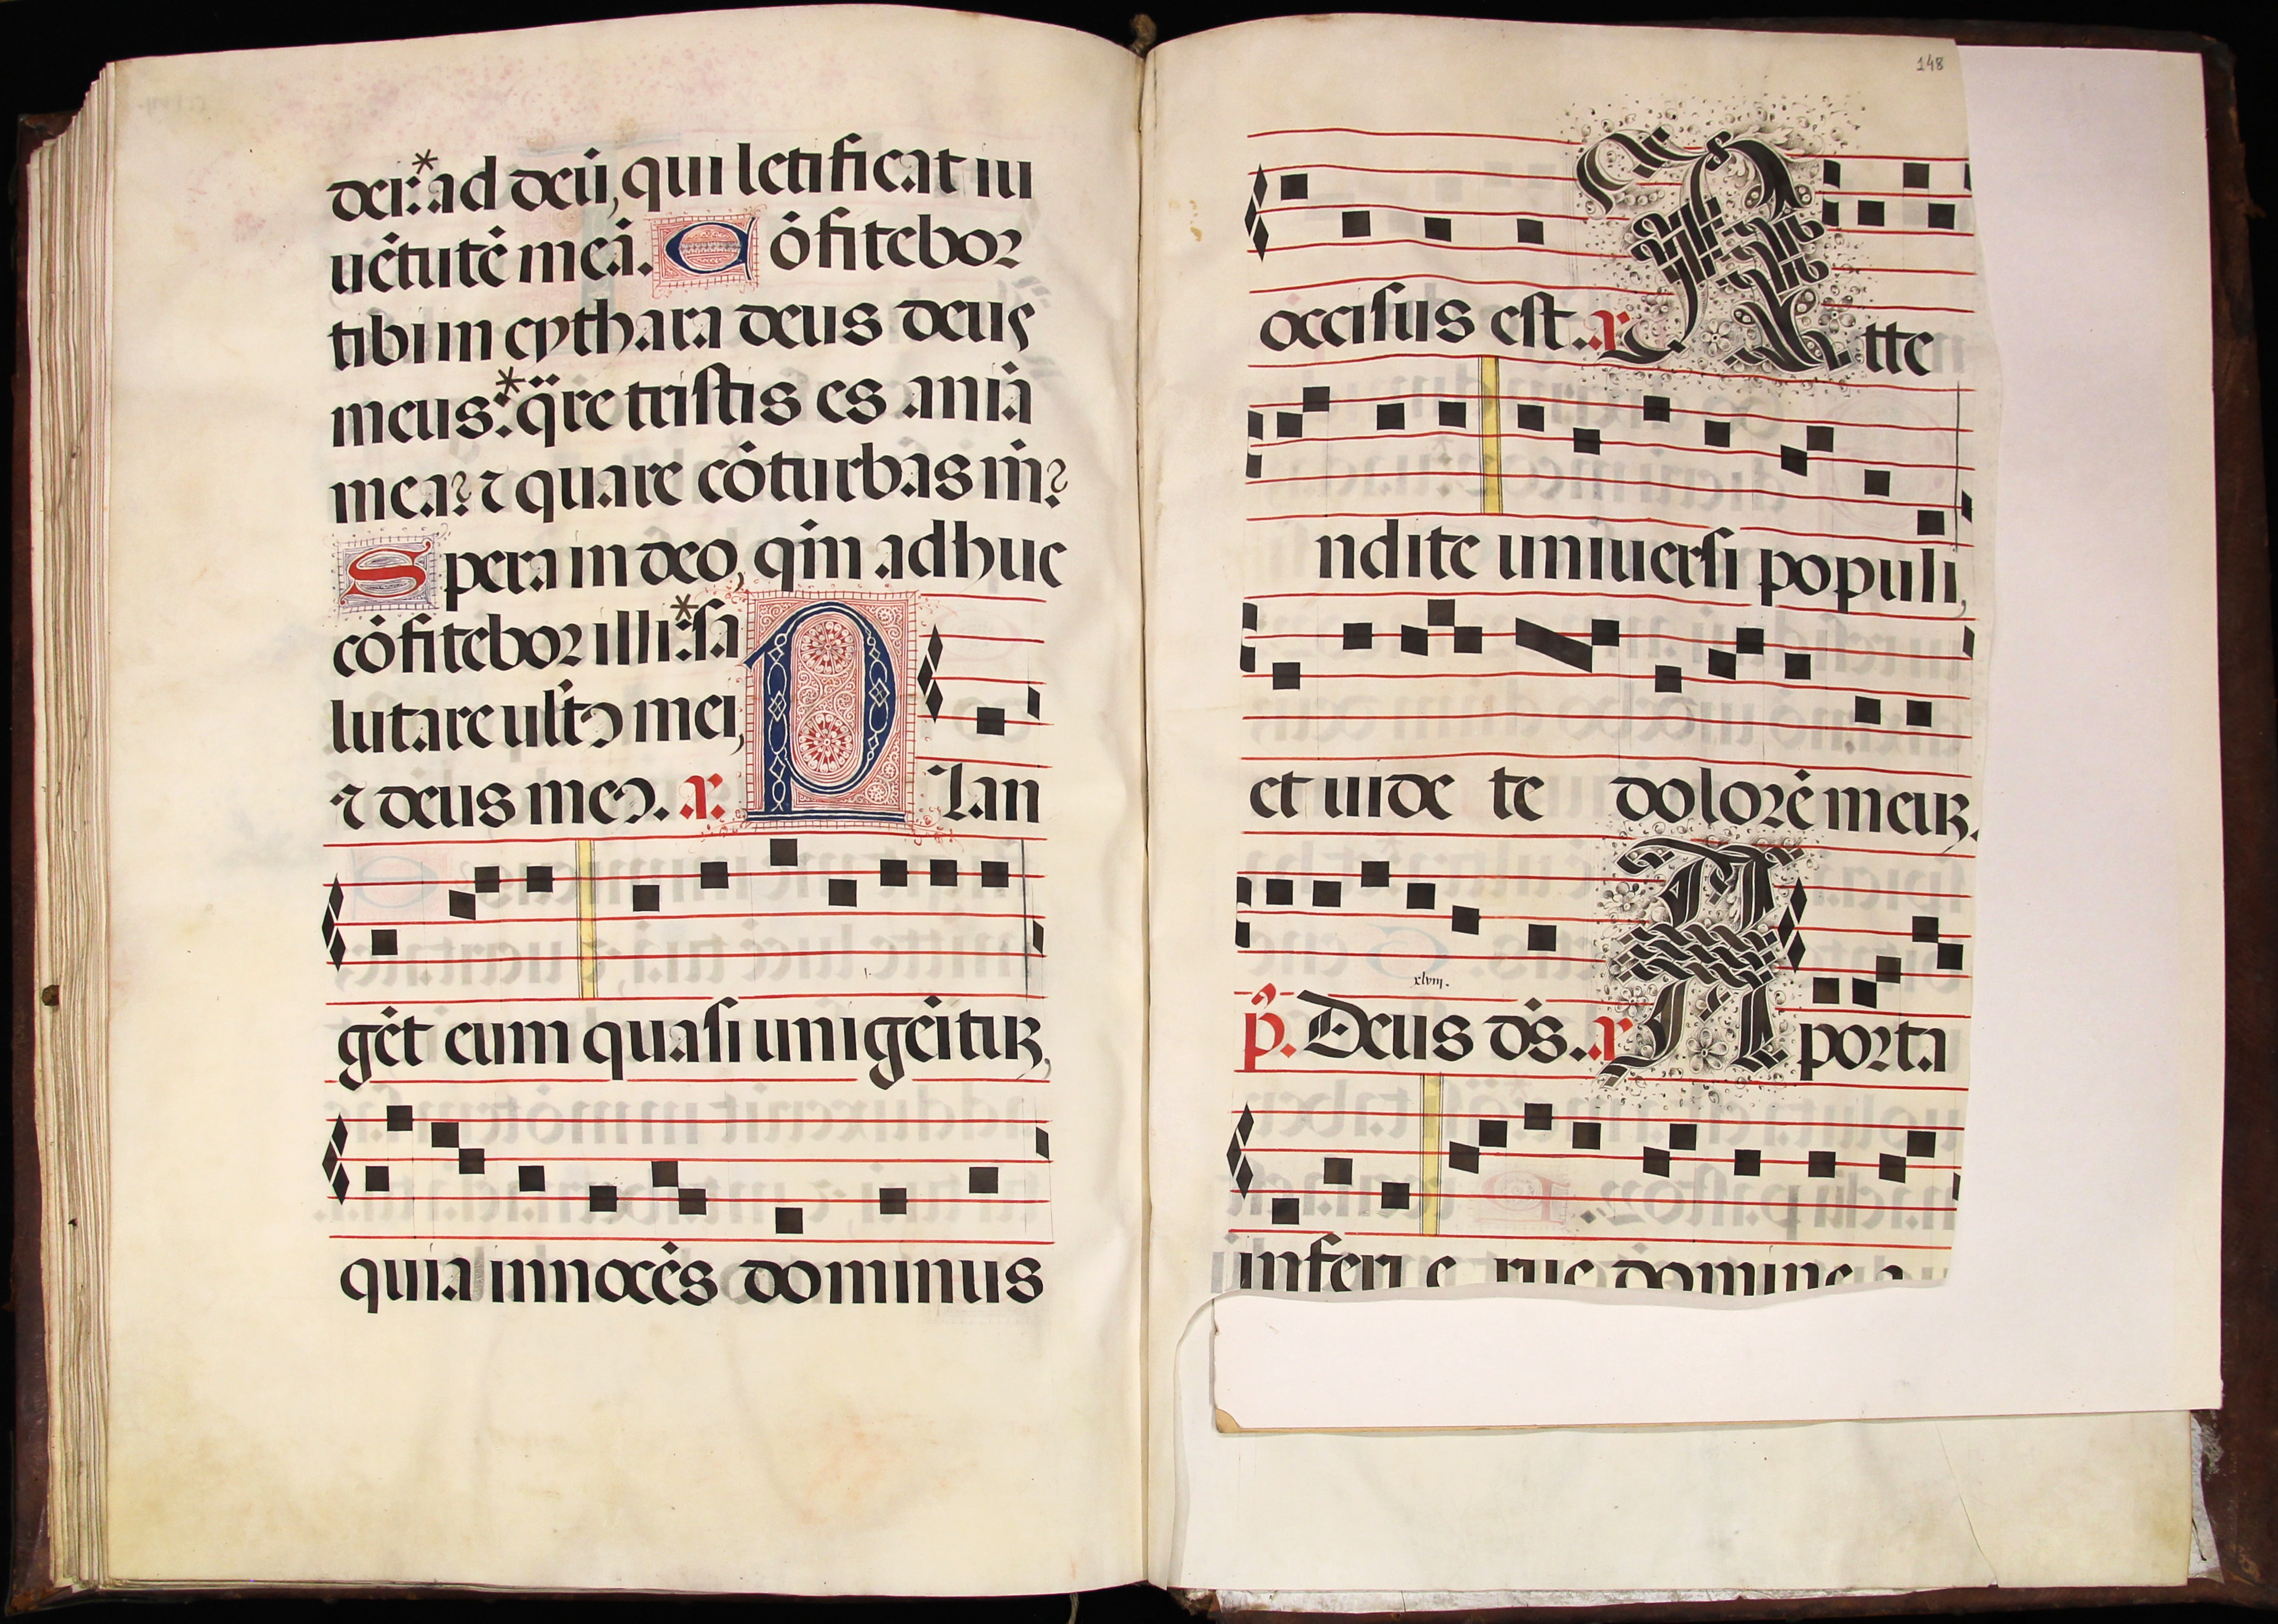 dei:* ad deū, qui letificat iu
uētutē meā. Cōfitebor
tibi in cythara deus deus
meus:* q̈re tristis es aniā
mea? ⁊ quare cōturbas m̄?
Spera in deo, qm̄ adhuc
cōfitebor illi:* sa
lutare ult᷑ mei,
⁊ deus meꝰ. a. Plan
gēt eum quasi unigēituꝝ,
quia innocēs dominus
148
occisus est. a. Atte
ndite uniuersi populi,
et uide te dolorē meuꝝ.
xlviij.
p̄. Deus ds̄. a. A porta
inferi e rue domine a